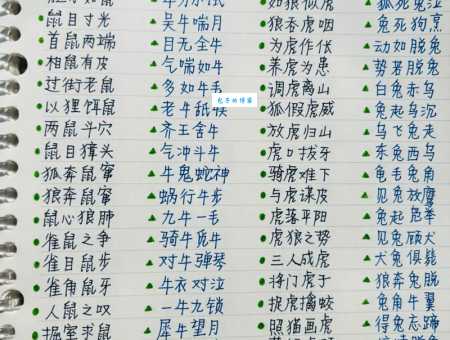 如狼似虎 狐死兔泣
鼠目寸光 吴牛喘月 狼吞虎咽 兔死狗烹
首鼠两端 目无全牛 为虎作伥 动如脱兔
相鼠有皮 气喘如牛 养虎为患 势若脱兔
过街老鼠 多如牛毛 调虎离山 白兔赤乌
以狸饵鼠 老牛舐犊 狐假虎威 兔起乌沉
两鼠斗穴 齐王舍牛 放虎归山 乌飞兔走
鼠目獐头 气冲斗牛 虎口拔牙 东兔西乌
狐奔鼠窜 牛鬼蛇神 骑虎难下 龟毛兔角
狼奔鼠窜 蜗行牛步 与虎谋皮 见兔放鹰
鼠心狼肺 九牛一毛 虎落平阳 兔起凫举
雀鼠之争 骑牛觅牛 虎狼之势 见兔顾犬
雀目鼠步 对牛弹琴 三人成虎 犬兔俱毙
雀角鼠牙 牛衣对泣 将门虎子 狼奔兔脱
人鼠之叹 一牛九锁 捉虎擒蛟 兔角牛翼
掘室求鼠 犀牛望月 照猫画虎 得兔忘蹄